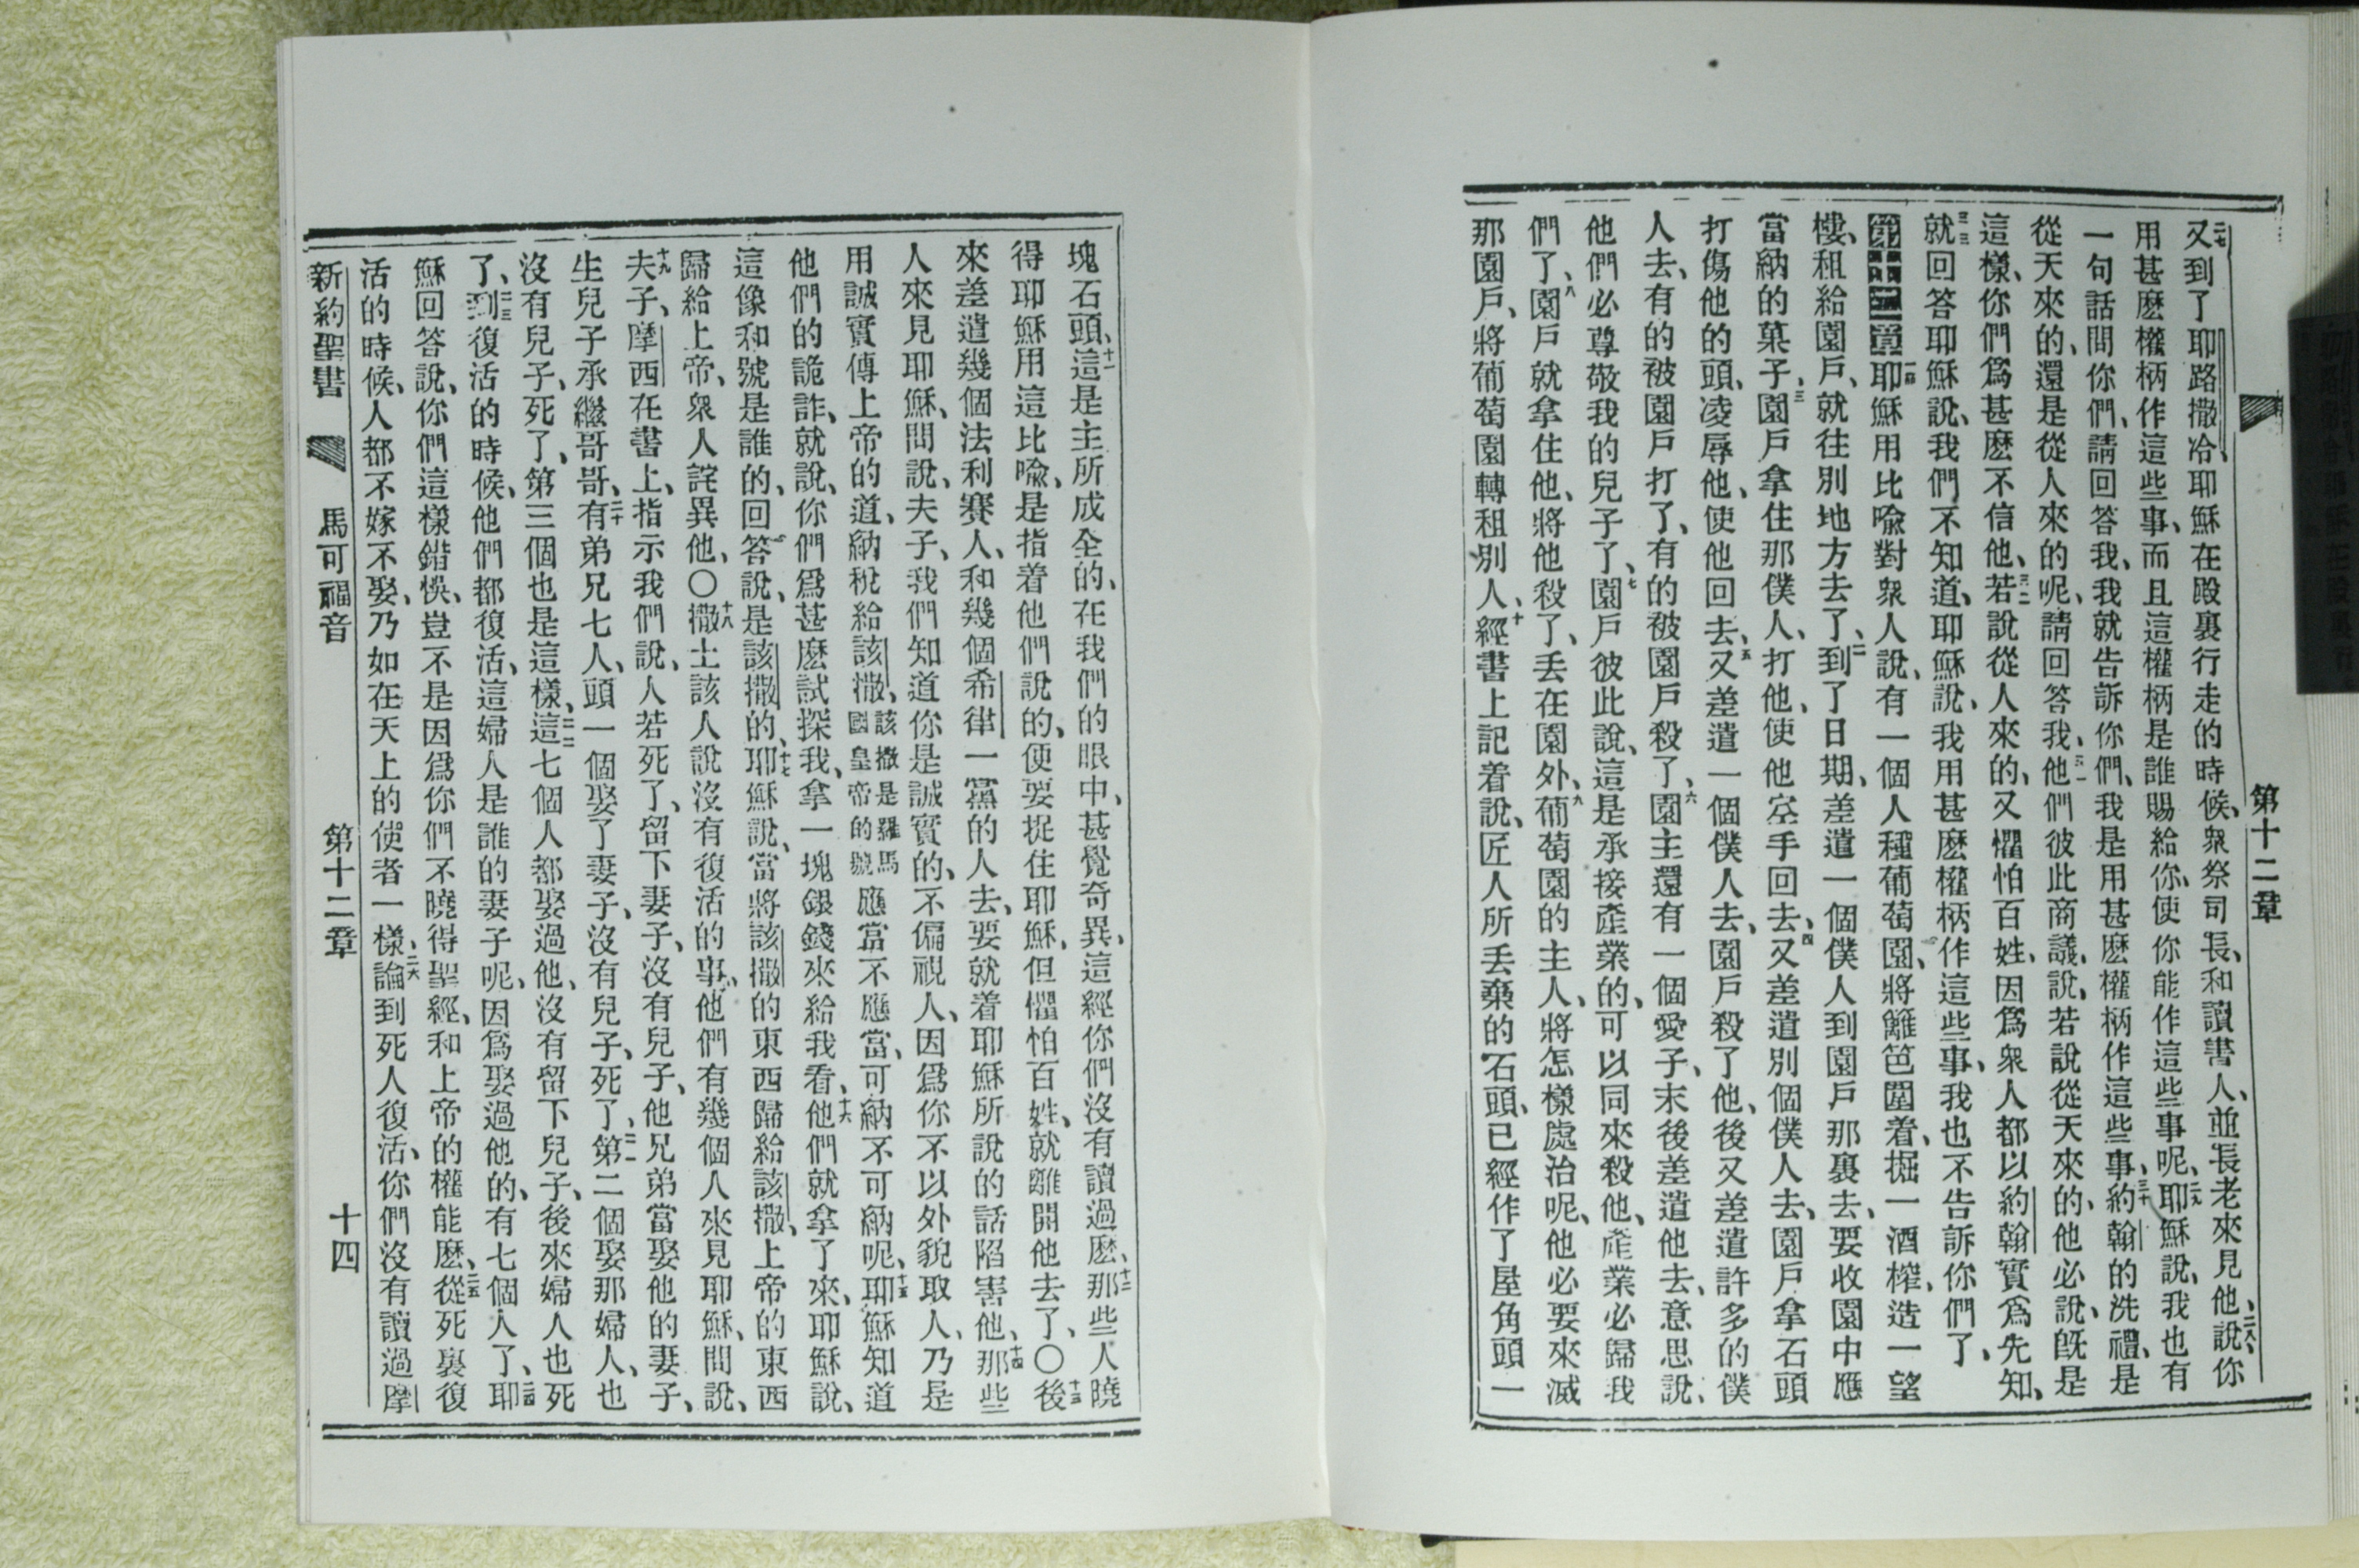 第十二章
又到了耶路撒冷、耶穌在殿裏行走的時候、衆祭司長、和讀書人、並長老來見他說、你
用甚麽權柄作這些事、而且這權柄是誰賜給你、使你能作這些事呢、耶穌說、我也有
一句話問你們、請回答我、我就告訴你們、我是用甚麽權柄作這些事、約翰的洗禮、是
從天來的、還是從人來的呢、請回答我、他們彼此商議、說、若說從天來的、他必說、旣是
這樣、你們爲甚麽不信他、若說從人來的、又懼怕百姓、因爲衆人都以約翰實爲先知、
就回答耶穌說、我們不知道、耶穌說、我用甚麽權柄作這些事、我也不告訴你們了、
第十二章耶穌用比喩對衆人說、有一個人種葡萄園、將籬笆圍着、掘一酒榨、造一望
樓、租給園戶、就往別地方去了、到了日期、差遣一個僕人到園戶那裏去、要收園中應
當納的菓子、園戶拿住那僕人、打他、使他空手回去、又差遣別個僕人去、園戶拿石頭
打傷他的頭、凌辱他、使他回去、又差遣一個僕人去、園戶殺了他、後又差遣許多的僕
人去、有的被園戶打了、有的被園戶殺了、園主還有一個愛子、末後差遣他去、意思說、
他們必尊敬我的兒子了、園戶彼此說、這是承接產業的、可以同來殺他、產業必歸我
們了、園戶就拿住他、將他殺了、丢在園外、葡萄園的主人、將怎樣處治呢、他必要來滅
那園戶、將葡萄園轉租別人、經書上記着說、匠人所丢棄的石頭、已經作了屋角頭一
塊石頭、這是主所成全的、在我們的眼中、甚覺奇異、這經你們沒有讀過麽、那些人曉
得耶穌用這比喩、是指着他們說的、便要捉住耶穌、但懼怕百姓、就離開他去了、〇後
來差遣幾個法利賽人、和幾個希律一黨的人去、要就着耶穌所說的話陷害他、那些
人來見耶穌、問說、夫子、我們知道你是誠實的、不偏視人、因爲你不以外貌取人、乃是
用誠實傳上帝的道、納稅給該撒、該撒是羅馬國皇帝的號應當不應當、可納不可納呢、耶穌知道
他們的詭詐、就說、你們爲甚麽試探我、拿一塊銀錢來給我看、他們就拿了來、耶穌說、
這像和號是誰的、回答說、是該撒的、耶穌說、當將該撒的東西歸給該撒、上帝的東西
歸給上帝、衆人詫異他、〇撒土該人說沒有復活的事、他們有幾個人來見耶穌、問說、
夫子、摩西在書上、指示我們說、人若死了、留下妻子、沒有兒子、他兄弟當娶他的妻子、
生兒子承繼哥哥、有弟兄七人、頭一個娶了妻子、沒有兒子、死了、第二個娶那婦人、也
沒有兒子、死了、第三個也是這樣、這七個人都娶過他、沒有留下兒子、後來婦人也死
了、到復活的時候、他們都復活、這婦人是誰的妻子呢、因爲娶過他的、有七個人了、耶
穌回答說、你們這樣錯悞、豈不是因爲你們不曉得聖經、和上帝的權能麽、從死裏復
活的時候、人都不嫁不娶、乃如在天上的使者一樣、論到死人復活、你們沒有讀過摩
新約聖書 馬可福音 第十二章 十四